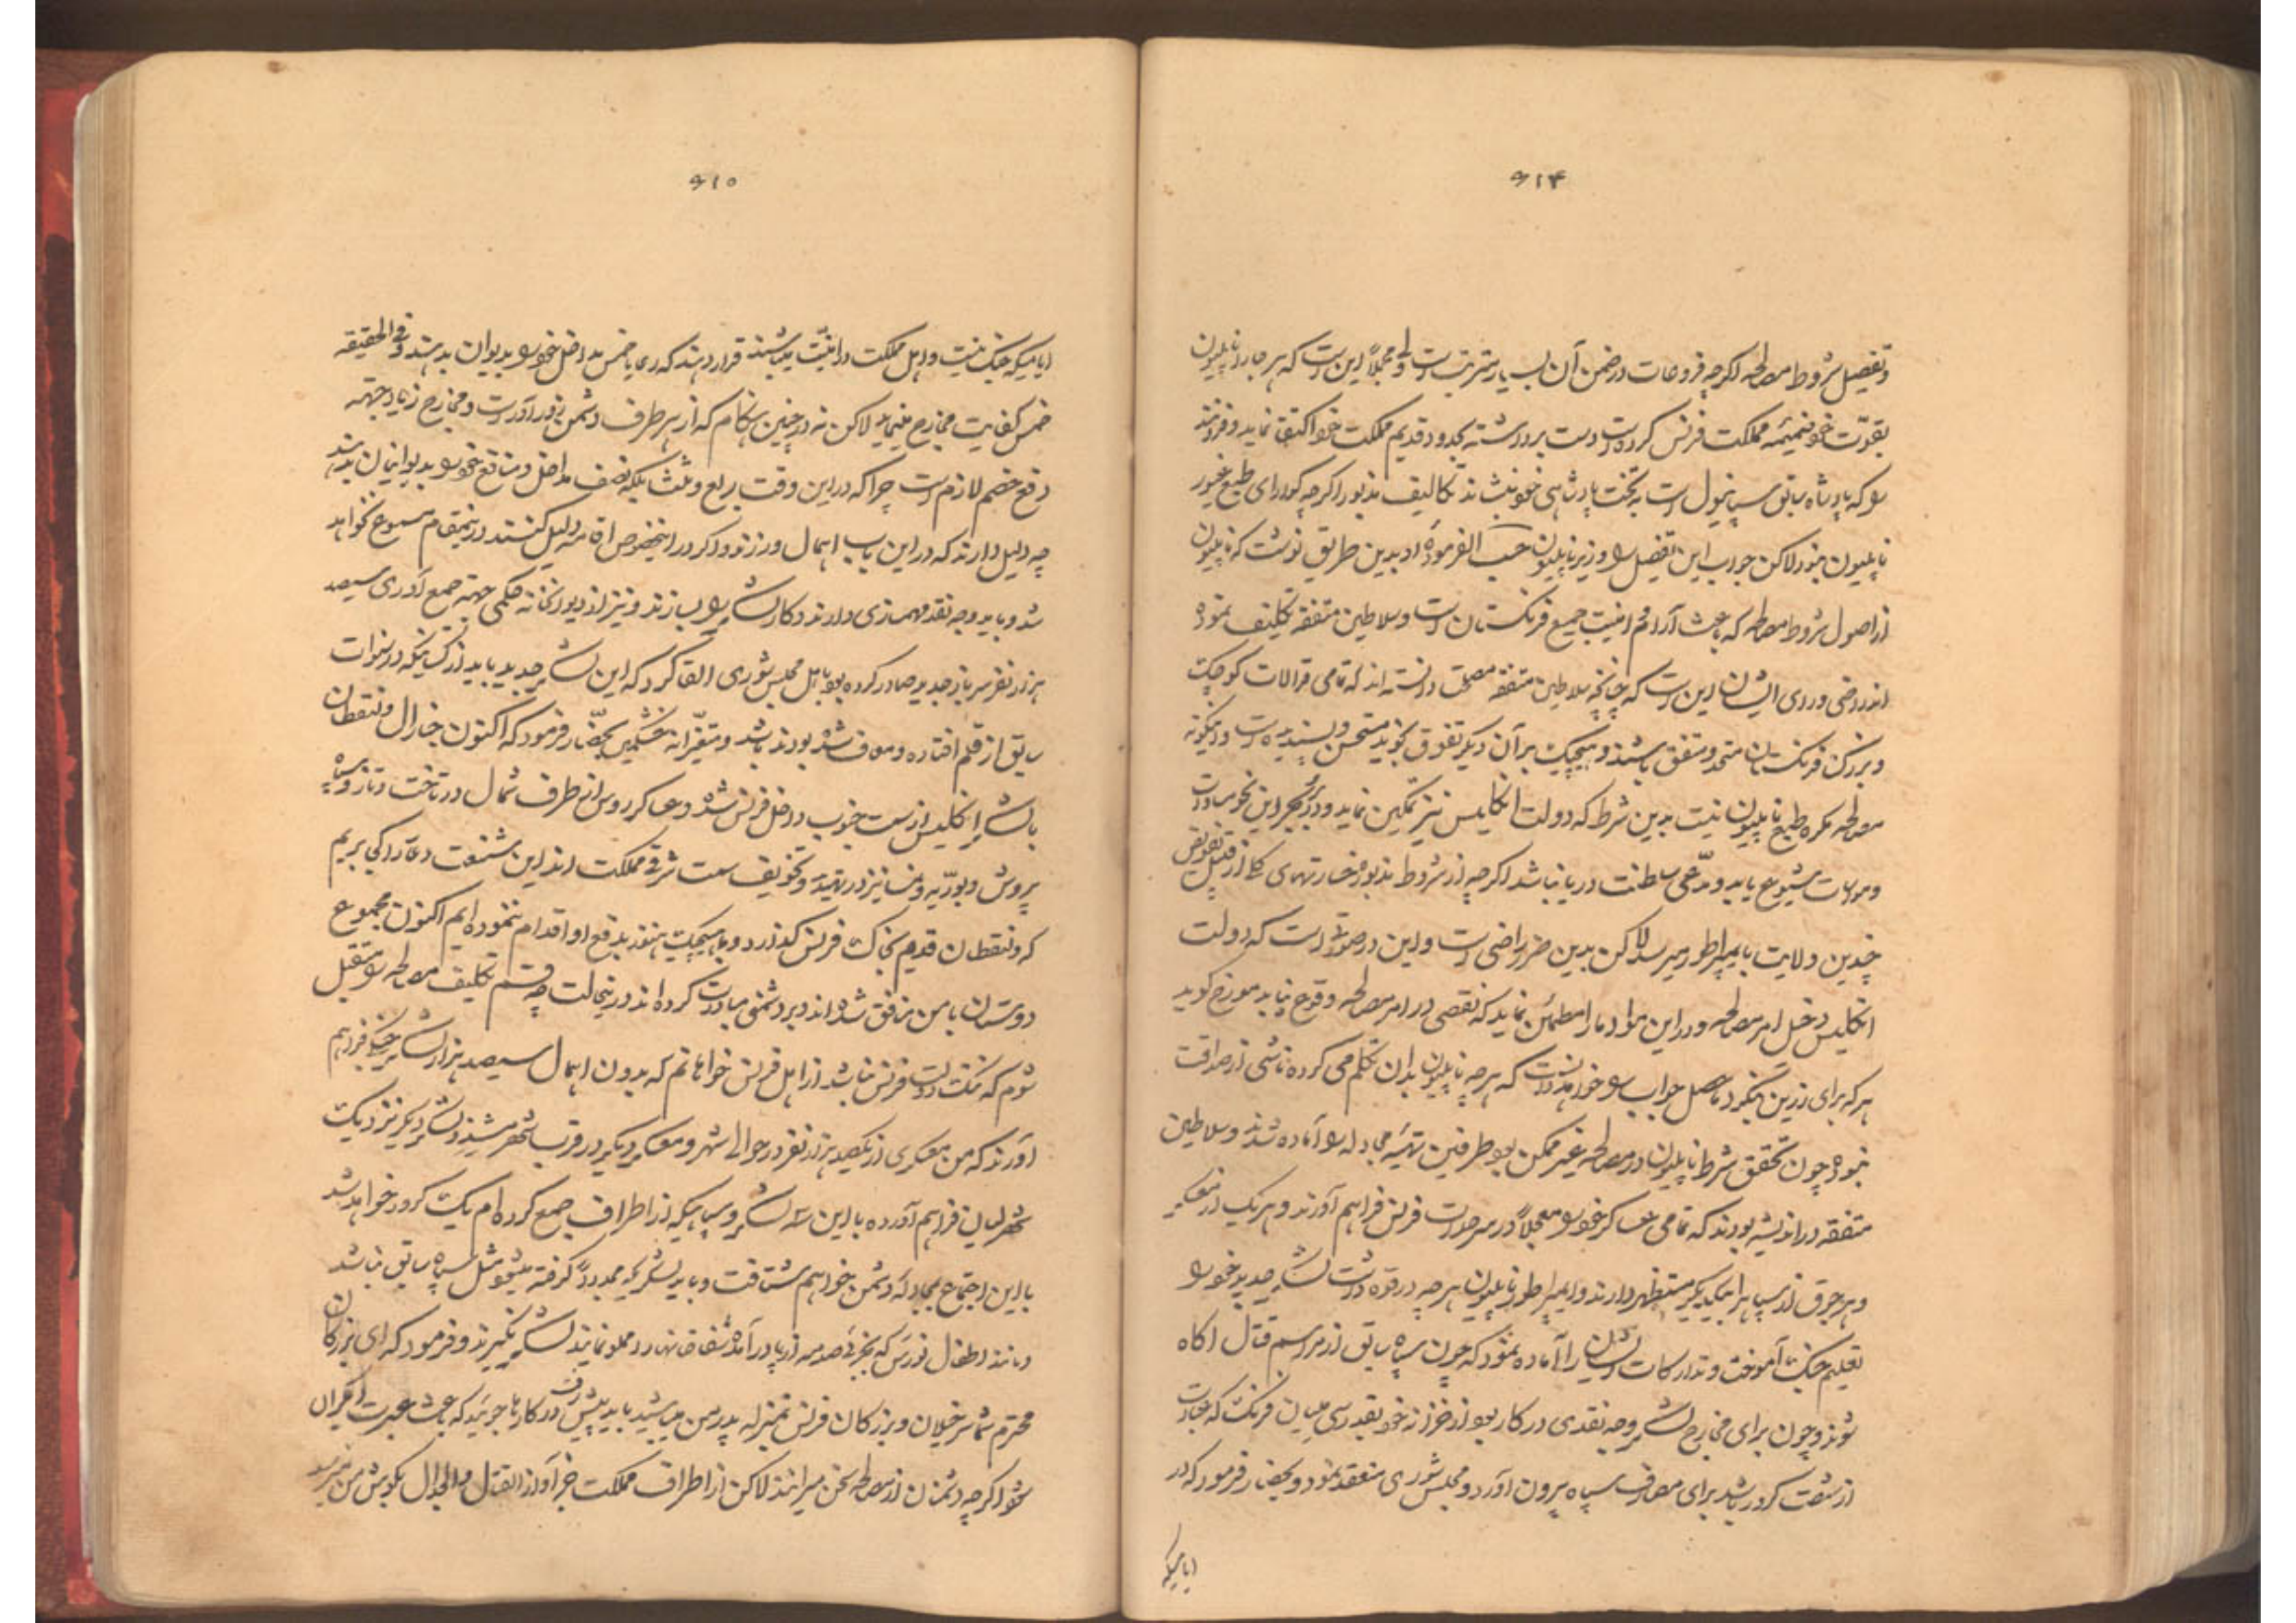 ۶۱۴
و تفصیل شروط مصالحه اکرچه فروعات در ضمن آن بسیار مترتبست ولی مجملاً این است که هر جا را ناپلیون
بقوت خود ضمیمه مملکت فرنس کرده است دست برداشته بحدود قدیم مملکت خود اکتفا نماید و فردنند
را که پادشاه سابق سپانیول است به تخت پادشاهی خود بنشاند تکالیف مذبور اکرچه کوارای طبع غیور
ناپلیون نبود لاکن جواب این تفصیل را وزیر ناپلیون حسب الفرموده او بدین طریق نوشت که ناپلیون
از اصول شروط مصالحه که باعث آرام و امنیت جمیع فرنکستان است و سلاطین متفقه تکلیف نموده
اند راضی و رای ایشان این است که چنانچه سلاطین متفقه مصلحت دانسته اند که تمامی قرالات کوچک
و بزرک فرنکستان متحد و متفق باشند و هیچیک بر آن دیکر تفوق نجوید مستحسن و پسندیده است و اینکونه
مصالحه مکروه طبع ناپلیون نیست بدین شرط که دولت انکلیس نیز تمکین نماید و در بر و بحر این نحو مساوات
و مواسات شیوع یابد و مدعی سلطنت دریا نباشد اکرچه از شروط مذبور خسارتهای کلی از قبیل تفویض
چندین ولایت بایمپراطور میرسد لاکن بدین ضرر راضی است و این در صورتیست که دولت
انکلیس دخیل امر مصالحه و در این مواد ما را مطمئن نماید که نقصی در امر مصالحه وقوع نیابد مورخ کوید
هر که برای رزین بنکرد ماحصل جواب را خواهد دانست که هر چه ناپلیون بدان تکلم می کرده ناشی از صداقت
نبوده چون تحقق شرط ناپلیون در مصالحه غیر ممکن بود طرفین تهیه مجادله را آماده شدند و سلاطین
متفقه در اندیشه بودند که تمامی عساکر خود را معجلاً در سرحدات فرنس فراهم آورند و هر یک از معسکر
و هر جوق از سپاه را بیکدیکر مستظهر دارند و ایمپراطور ناپلیون هر چه در قوه داشت لشکر جدید خود را
تعلیم جنک آموخت و تدارکات ایشان را آماده نمود که چون سپاه سابق از مراسم قتال اکاه
شوند و چون برای مخارج لشکر وجه نقدی در کار بود از خزانه خود بقدر سی ملیان فرنک که عبارت
از شصت کرور باشد برای مصارف سپاه بیرون آورد و مجلس شوری منعقد نمود و بحضار فرمود که در
ایامیکه
۶۱۵
ایامیکه جنک نیست و اهل مملکت در امنیت میباشند قرار دهند که رعایا خمس مداخل خود را بدیوان بدهند فی الحقیقه
خمس کفایت مخارج مینماید لاکن نه در چنین هنکام که از هر طرف دشمن زورآور است و مخارج زیاد جهته
دفع خصم لازم است چرا که در این وقت ربع و ثلث بلکه نصف مداخل و منافع خود را بدیوانیان بدهند
چه دلیل دارند که در این باب اهمال ورزند و اکر در اینخصوص اقامه دلیل کنند در اینمقام مسموع نخواهد
شد و باید وجه نقد فهمسازی دارند و کار لشکر را بسازند و نیز از دیوانخانه حکمی جهته جمع آوری سیصد
هزار نفر سرباز جدید صادر کرده بود باهل مجلس شوری القا کرد که این لشکر جدید باید از کسانیکه در سنوات
سابق از قلم افتاده و معاف شده بودند باشد و متغیرانه خشمکین بحضار فرمود که اکنون جنارال ونتقطان
با لشکر انکلیس از سمت جنوب داخل فرنس شده و عساکر روس از طرف شمال در تاخت و تاز و سپاه
پروس و بوریه و نمسا نیز در تهدید و تخویف سمت شرقی مملکت اند این شنعت و عار را کی بریم
که ونتقطان قدم بخاک فرنس کذارد و ما هیچیک هنوز بدفع او اقدام ننموده ایم اکنون مجموع
دوستان با من منافق شده اند و بر دشمنی مبادرت کرده اند در اینحالت چه قسم تکلیف مصالحه را متقبل
شوم که نکث دولت فرنس نباشد از اهل فرنس خواهانم که بدون اهمال سیصد هزار لشکر جنکی فراهم
آورند که من معسکری از یکصد هزار نفر در حوالی شهر و معسکر دیکر در قرب شهر و لشکر دیکر نزدیک
شهر لیان فراهم آورده با این سه لشکر و سپاهیکه از اطراف جمع کرده ام یک کرور خواهد شد
با این اجتماع بمجادله دشمن خواهیم شتافت و باید لشکریکه مجدداً کرفته میشود مثل سپاه سابق نباشد
و مانند اطفال نورس که بجزئی صدمه از پا در آمده لشکر نکیرند و فرمود که ای بزرکان
محترم شما سرخیلان و بزرکان فرنس بمنزله پدر من میباشید باید پیشرفت در کارها جوئید که باعث عبرت دیکران
شود اکرچه دشمنان از مصالحه سخن میرانند لاکن از اطراف مملکت جز آواز القتال و الجدال بکوش من نمیرسد